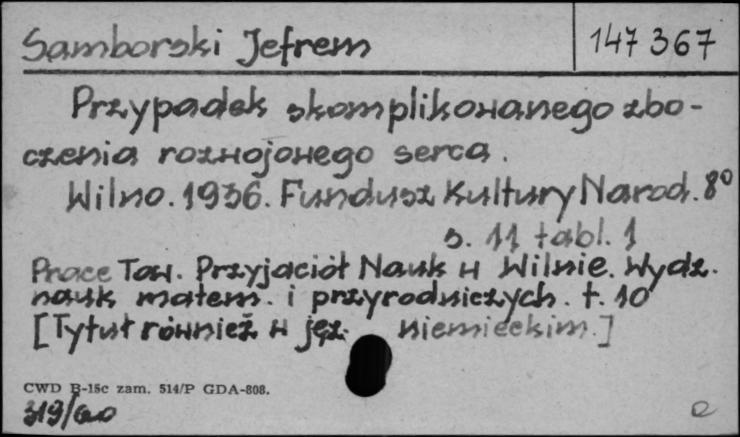 Samborski Jefrem
147 367
Przypadek skomplikowanego zbo-
czenia rozwojowego serca.
Wilno. 1936. Fundusz Kultury Narod. 8°
s. 11 tabl. 1
Prace Tow. Przyjaciół Nauk w Wilnie. Wydz.
nauk matem. i przyrodniczych. t. 10
[Tytuł również w jęz. niemieckim.]
CWD B-15c zam. 514/P GDA-808.
319/60